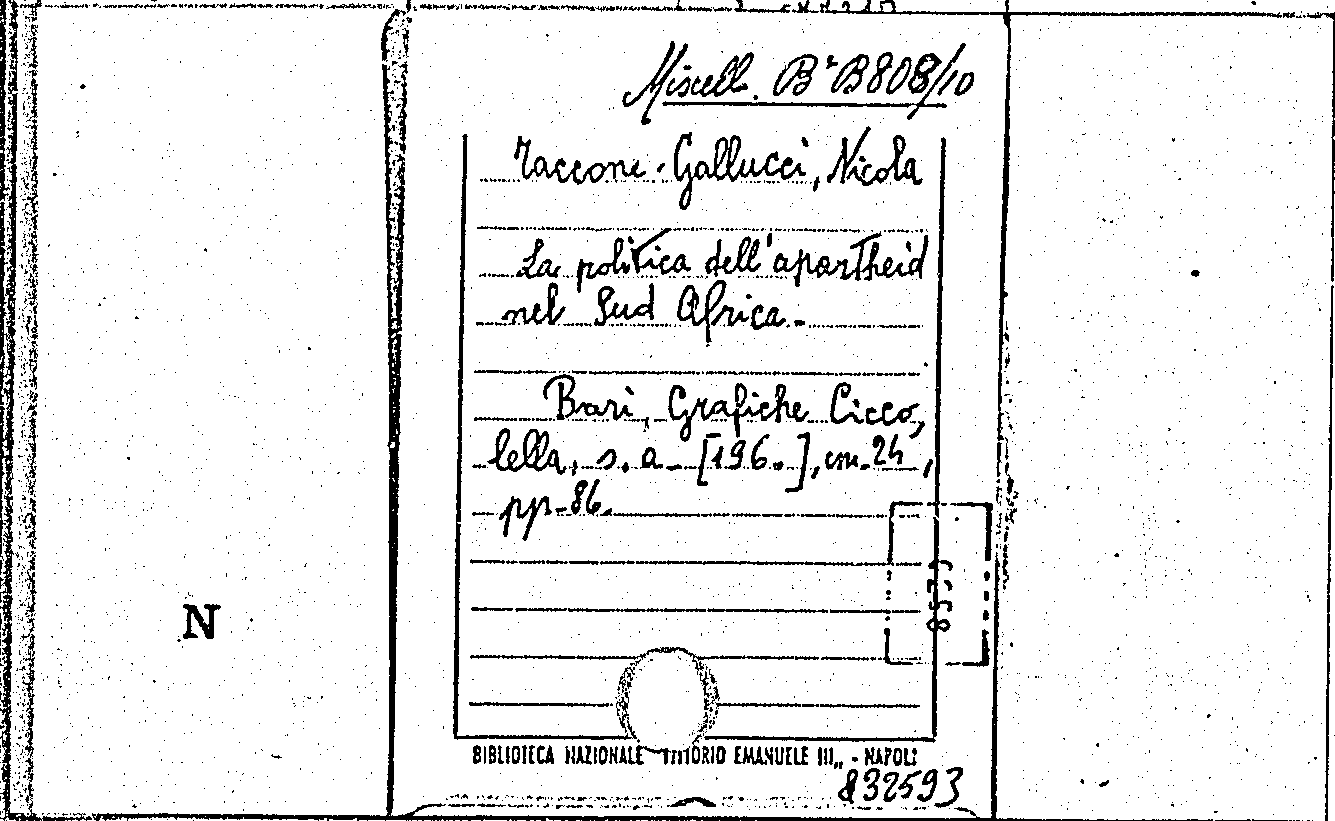 Miscell. B² B808/10
Taccone-Gallucci, Nicola
La politica dell'apartheid
nel Sud Africa.-
Bari, Grafiche Cicco,
lella, s.a. [196.], cm. 24,
pp. 86.
8579
N
BIBLIOTECA NAZIONALE VITTORIO EMANUELE III„ - NAPOLI
832593